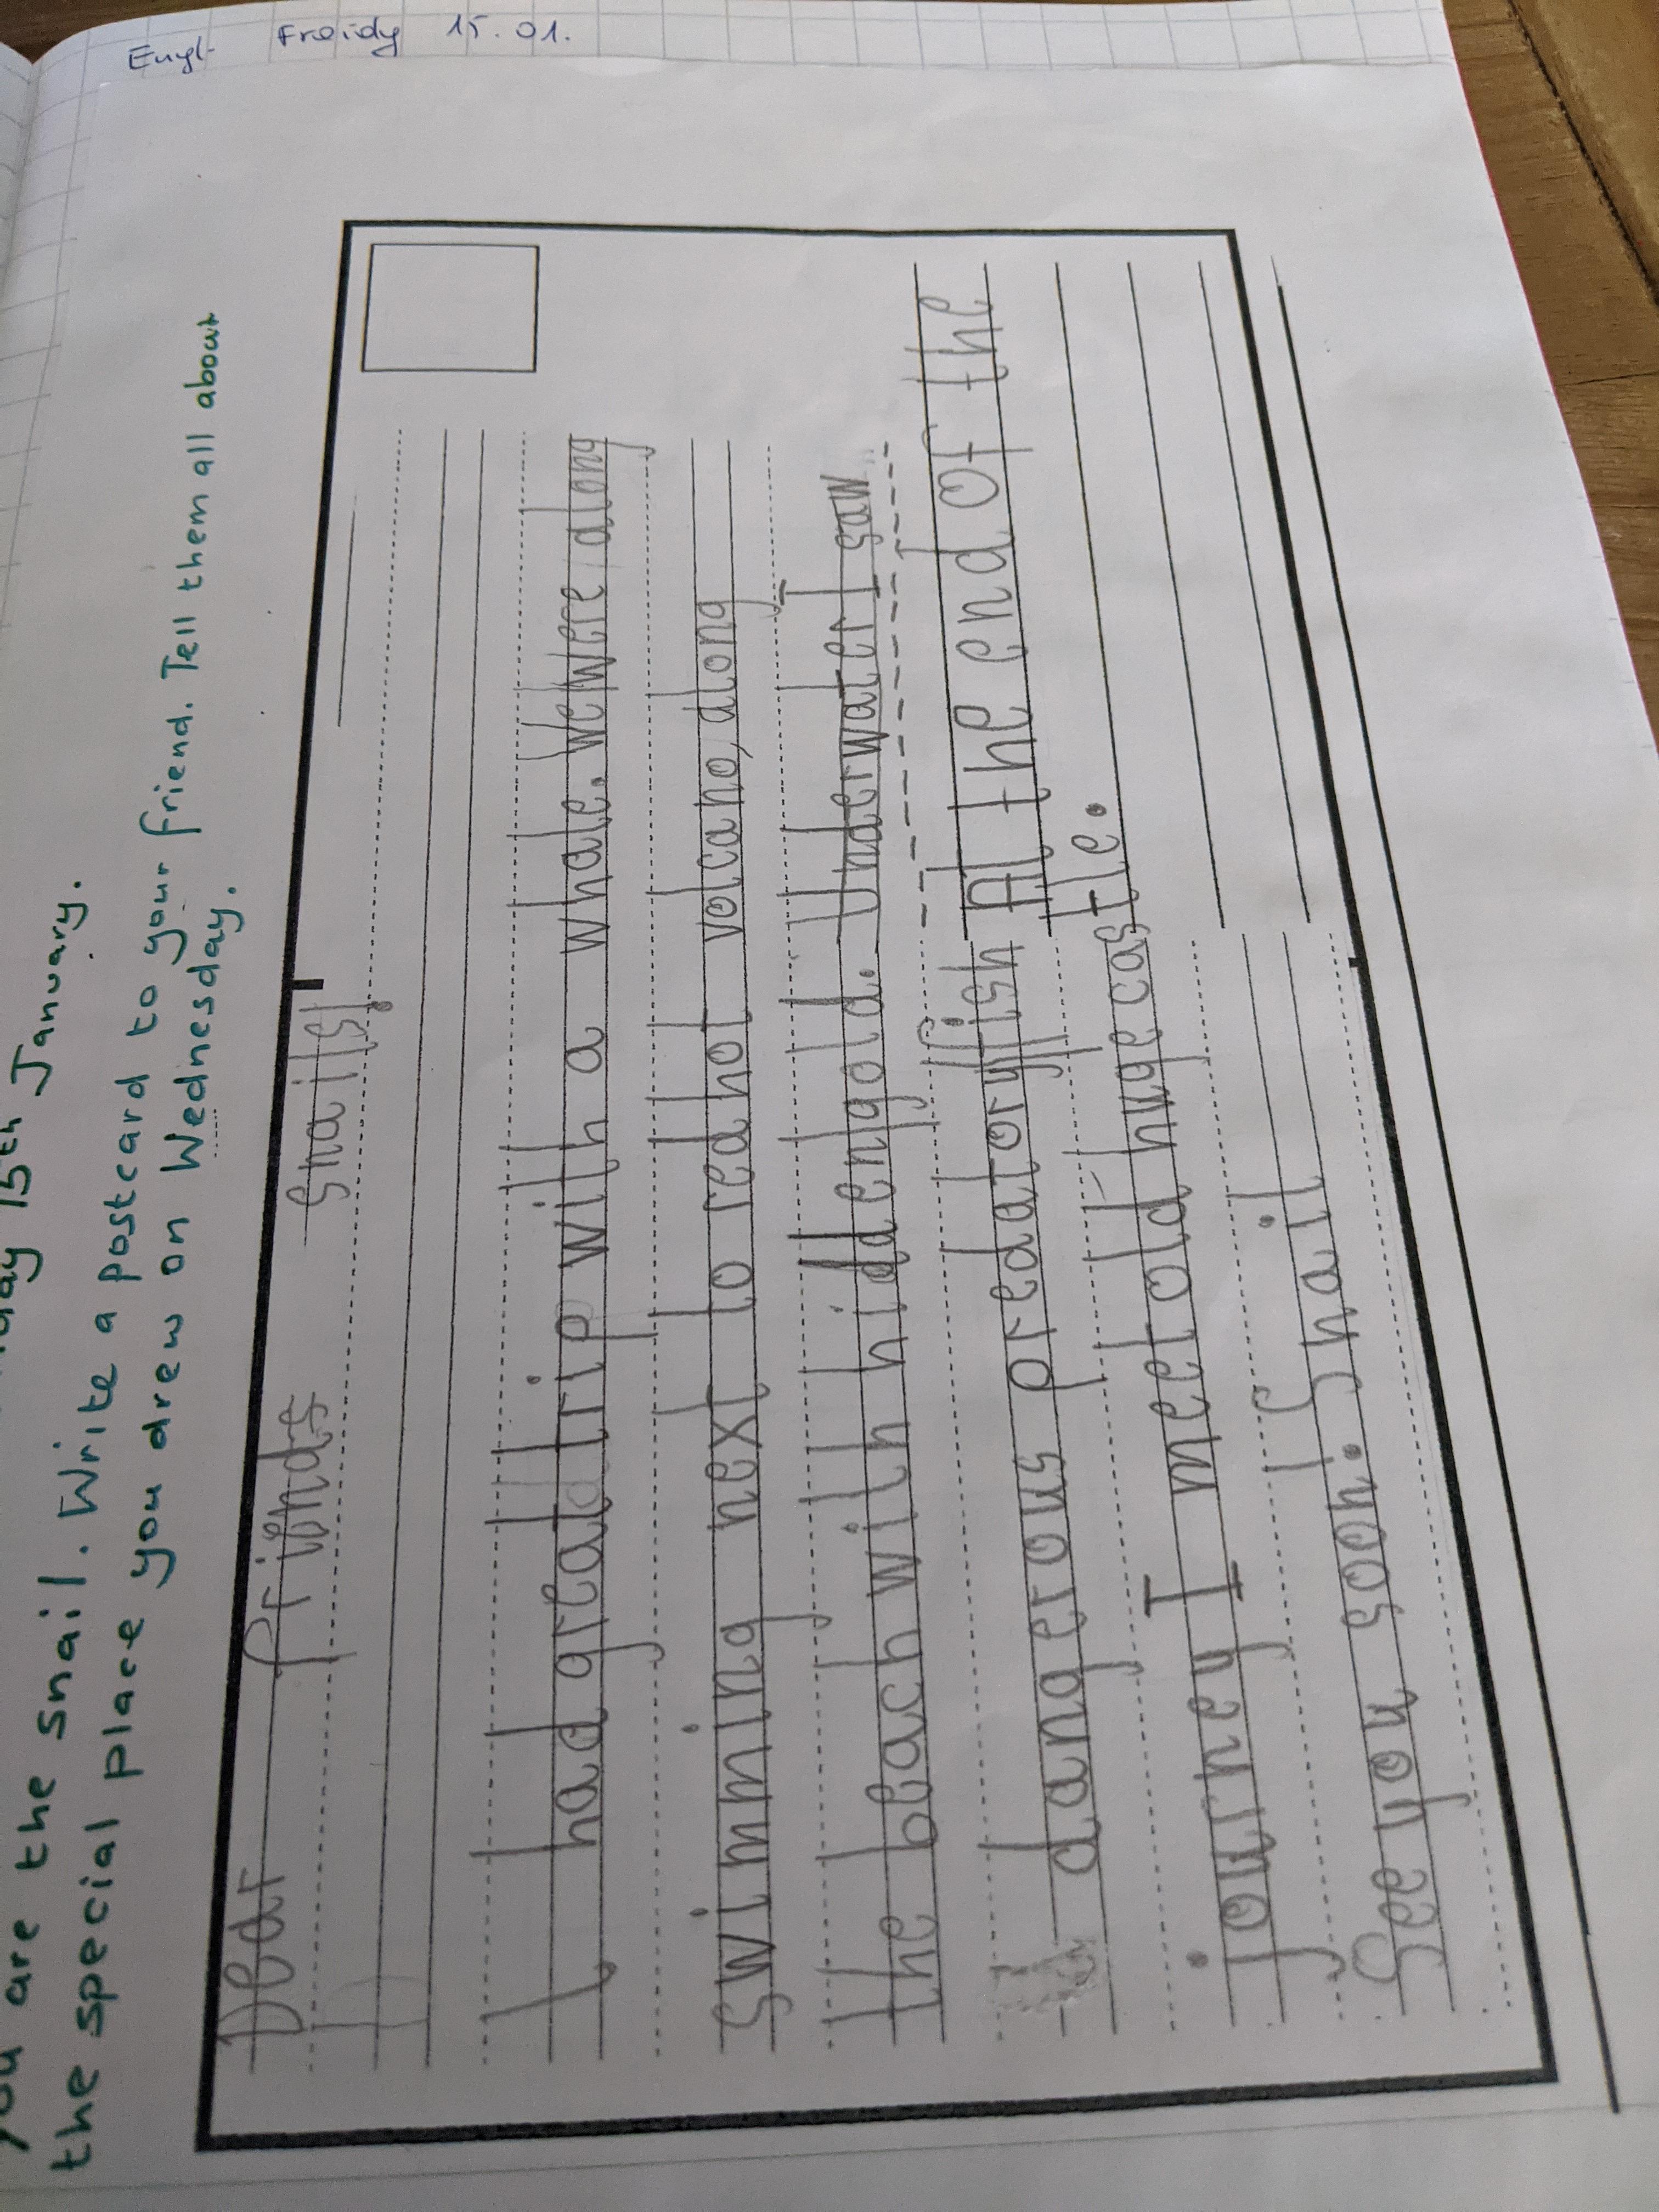 Engl- Froidy 15.01.
15th January.
you are the snail. Write a postcard to your friend. Tell them all about
the special place you drew on Wednesday.
Dear friends snails!
I had great trip with a whale. We were along
swimming next to red hot volcano, along
the beach with hidden gold. Underwater I saw
dangerous predatory fish At the end of the
journey I meet old huge castle.
See you soon. Snail